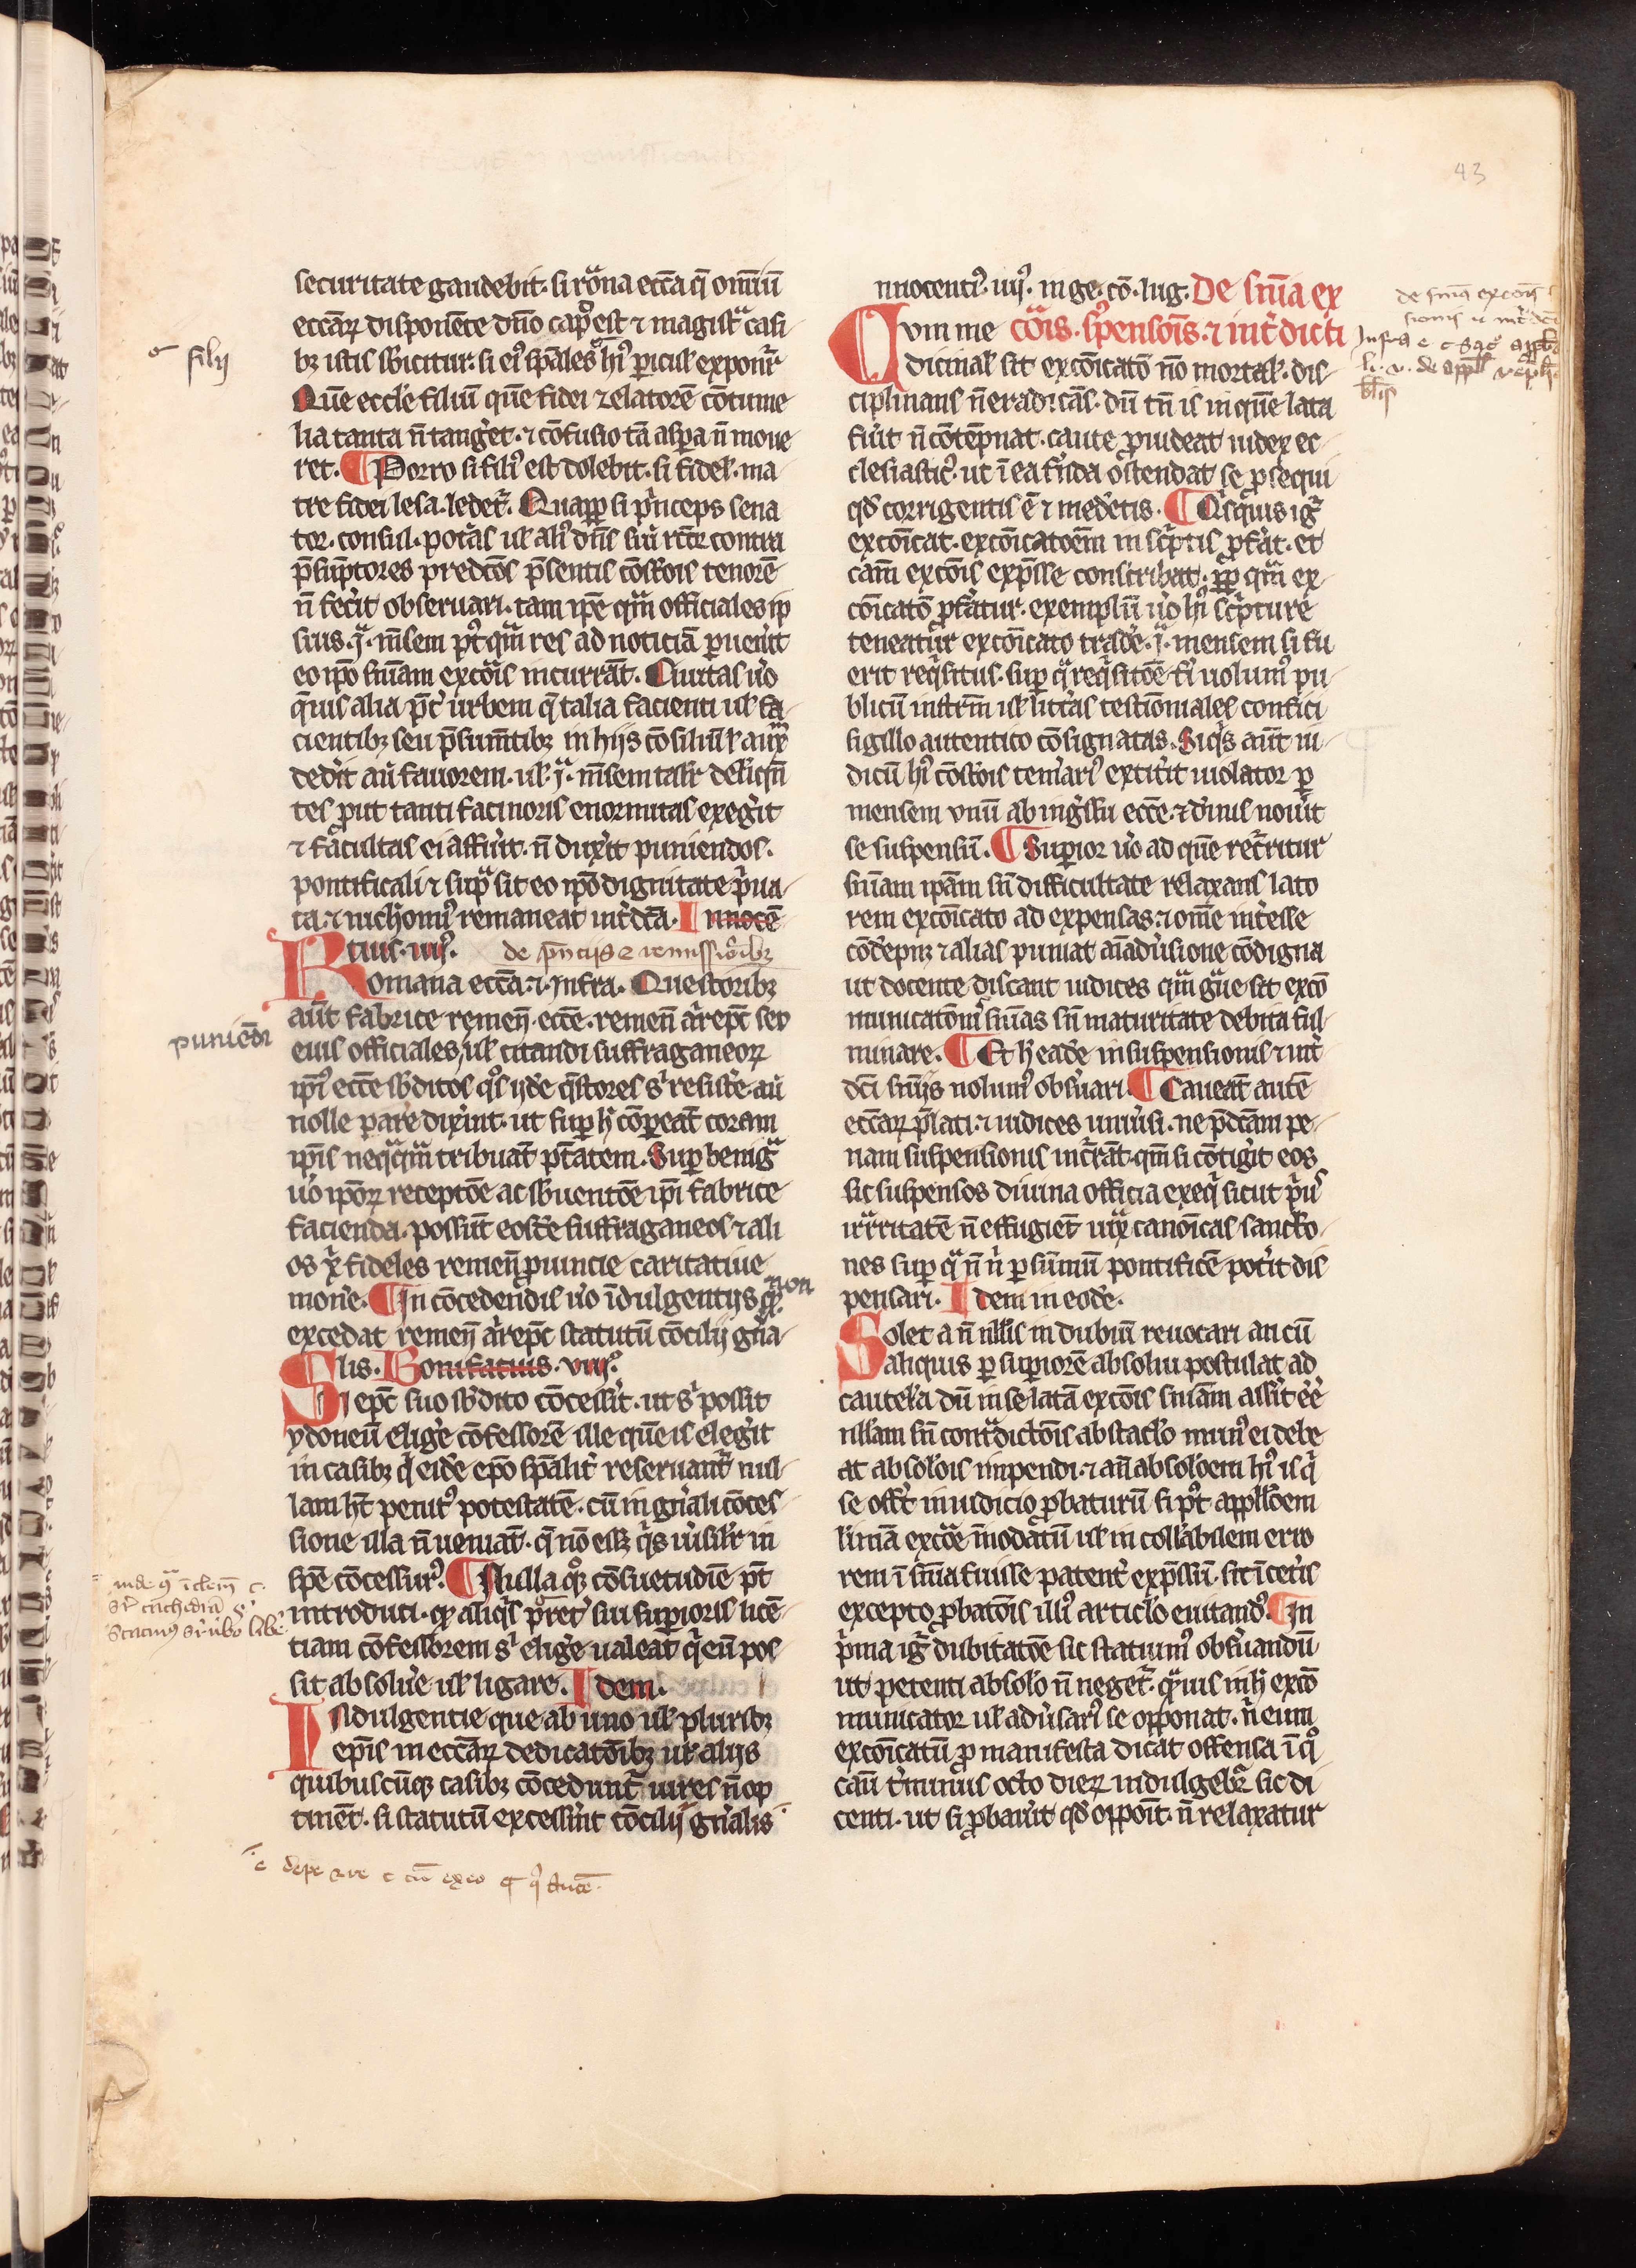 43
securitate gaudebit. si roͣna ecc̄a q̄ om̄iū
ecc̄aꝝ disponēte dn̄o cap̉ est ⁊ magistͣ casi
bꝫ istis sb̉icitur. si eiꝰ sp̄ales hͥ piculꝭ exponr̄
Quē eccl̄e filiū quē fidei zelatorē cōtume
lia tanta n̄ tanget. ⁊ cōfusio tā aspa n̄ moue
ret. ¶ Porro si filiꝰ est dolebit. si fidelꝭ. ma
tre fidei lesa. ledet̉. Quapp si pͥnceps sena
tor. consul. potās ul̉ aliꝰ dn̄s siū rc̄or contra
p̄sūptores predc̄os p̄sentis cōst̉ois tenorē
n̄ fec̉it obseruari. tam ip̄e qͣm officiales ip
sius. j̄ͣ. m̄sem pꝰt qͣm res ad noticiā puen̉it
eo ip̄o sn̄iam excōis incurrāt. Ciuitas ūo
q̄uis alia p̄t̉ urbem q̄ talia facienti ul̉ fa
cientibꝫ seu p̄sum̄tibꝫ in hijs cōsiliū ł auxͫ
ded̉it aū fauorem. ul̉ j̄ͣ. m̄sem tal̉r deliq̄n
tes put tanti facinoris enormitas exeg̉it
⁊ facultas ei affūit. n̄ dux̉it puniendos.
pontificali ⁊ supͣ sit eo ip̄o dignitate pͥua
ta. ⁊ nichomiꝰ remaneat int̉dc̄a. Innocē
tius. iiijꝰ. de pn̄ijs ⁊ remissioībꝫ
Romana ecc̄a. ⁊ infra. Questoribꝫ
aūt fabrice remen̄. ecc̄e. remen̄ ar̉ep̄c seo
eius officiales, ul̉ citandi suffraganeoꝝ
ip̄iꝰ ecc̄e sb̉ditos qͦs ijdē q̄stores sͥ resist̉e. aū
nolle par̉e dix̉int. ut sup hͨ cōpeat̄ coram
ip̄is neqͣqͣm tribuāt pt̄atem. Sup benigͣ
ūo ip̄oꝝ receptōe ac sb̉uentōe ip̄i fabrice
facienda. possūt eosd̄e suffraganeos ⁊ ali
os xͥ fideles remen̄ puincie caritatiue
mon̉e. ¶ In cōcedendis ūo īdulgentijs qͣ non
excedat remen̄ ar̉ep̄c statutū cōcilij gn̄a
lis. Bonifatius. viijꝰ.
Si ep̄c suo sb̉dito cōcess̉it. ut sͥ possit
ydoneū elig̉e cōfessorē ille quē is elegit
in casibꝫ qͥ eidē ep̄o sp̄alit̉ reseruant̉ nul
lam ht̄ penit̉ꝰ potestatē. cū in gn̄ali cōces
sione illa n̄ ueniāt. q̄ nō eēt qͥs ūisil̉r in
sp̄e cōcessurꝰ. ¶ Nulla qͦꝫ cōsuetudīe pt̄
introduci. qͥ aliqͥs pret̉ sui superioris licē
tiam cōfessorem sͥ elig̉e ualeat qͥ eū pos
sit absolūe ul̉ ligare. Idem.
Indulgentie que ab uno ul̉ pluribꝫ
ep̄is in ecc̄aꝝ dedicatōibꝫ ul̉ alijs
quibuscūqꝫ casibꝫ cōcedunt̉ uires n̄ op
tinēt. si statutū excess̉int cōcilij gn̄alis
nnocentiꝰ. iiijꝰ. in ge. cō. lug. De sn̄ia ex
Cum me cōis. sꝰpensōis. ⁊ int̉dicti
dicinalꝭ sit excōicatō nō mortalꝭ. dis
ciplinans n̄ eradicās. dū tn̄ is in quē lata
fūit n̄ cōtēpnat. caute puideat iudex ec
clesiasticꝰ. ut ī ea f̉nda ostendat se psequi
qd̉ corrigentis ē ⁊ medētis. ¶ Qͥsquis igͬ
excōicat. excōicatōem in scͥptis pf̉at. et
cām excōis exp̄sse conscribat. pp qͣm ex
cōicatō pf̉atur. exemplū ūo hͥ scͥpture
teneatur excōicato trad̉e. j̄ͣ. mensem si fu
erit reqͥsitus. sup qͣ reqͥsitōe fỉ uolumꝰ pu
blicū instr̄m ul̉ litt̉as testioniales confici
sigillo autentico cōsignatas. Siqͥs aūt iu
dicū hͥ cōst̉ois tem̉ariꝰ extit̉it uiolator p
mensem vnū ab ing̉ssu ecc̄e. ⁊ diuīs noủit
se suspensū. ¶ Superior ūo ad quē rec̉ritur
sn̄iam ip̄am sn̄ difficultate relaxans lato
rem excōicato ad expensas. ⁊ om̄e int̉esse
cōdepnꝫ ⁊ alias puniat aīadūsione cōdigna
ut docente discant iudices qͣm gͣue sit excō
municatōnū sn̄ias sn̄ maturitate debita ful
minare. ¶ Et hͨ eadē in suspensionis ⁊ int̉
dc̄i sn̄ijs uolumꝰ obsūari. ¶ Caueāt autē
ecc̄aꝝ p̄lati. ⁊ iudices uniūsi. ne p̄dc̄am pe
nam suspensionis incͬrāt. qm̄ si cōtig̉it eos
sic suspensos diuina officia exeqͥ sicut pͥꝰ
irͬritatē n̄ effugient̉ iuxͣ canōicas sanctō
nes sup qͣ n̄ nͥ p sūmū pontificē pot̉it dis
pensari. Idem in eodē.
Solet a n̄ nullis in dubiū reuocari an cū
aliquis p superiorē absolui postulat ad
cautela dū in se latā excōis sn̄iam ass̉it ēe
nullam sn̄ contͣdictōis obstaclo munꝰ ei debe
at absolōis impendi. ⁊ an̄ absolōem hͥ is qͥ
se off̉t in iudicio pbaturū si pꝰt appll̉oem
līmā excōe īnodatū ul̉ in coll̉abilem erro
rem ī sn̄ia fuisse patent̉ exp̄ssū. sit ī cet̉is
excepto pbatōis illiꝰ articlo euitandꝰ. ¶ In
pͥma igͬ dubitatōe sic statuimꝰ obsūandū
ut petenti absolō n̄ neget̉. qͣuis inhͨ excō
municator ul̉ adūsariꝰ se opponat. n̄ eum
excōicatū p manifesta dicat offensa ī qͦ
cāu t̉minus octo dieꝝ indulgebr̄ sic di
centi. ut si pbaủit qd̉ oppoīt. n̄ relaxatur
filij
puniēdi